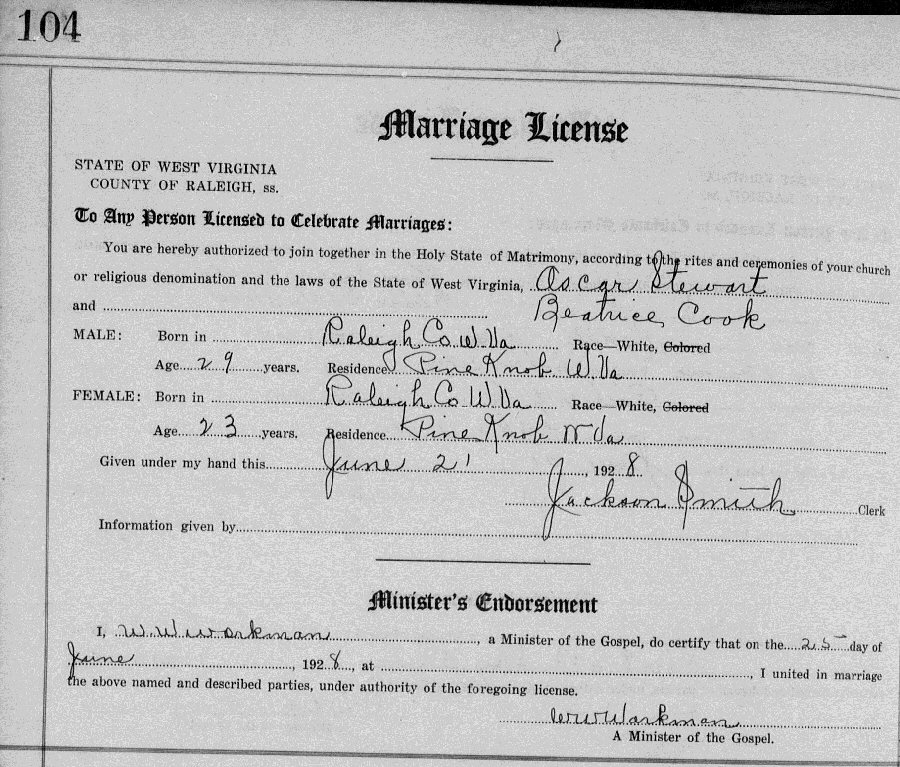 104
Marriage License
STATE OF WEST VIRGINIA
COUNTY OF RALEIGH, ss.
To Any Person Licensed to Celebrate Marriages:
You are hereby authorized to join together in the Holy State of Matrimony, according to the rites and ceremonies of your church
or religious denomination and the laws of the State of West Virginia, Oscar Stewart
and Beatrice Cook
MALE: Born in Raleigh Co. W. Va Race—White, Colored
Age 29 years. Residence Pine Knob W. Va
FEMALE: Born in Raleigh Co W. Va Race—White, Colored
Age 23 years. Residence Pine Knob W Va
Given under my hand this June 21, 1928
Jackson Smith Clerk
Information given by
Minister's Endorsement
I, W. W. Workman, a Minister of the Gospel, do certify that on the 25 day of
June, 1928, at, I united in marriage
the above named and described parties, under authority of the foregoing license.
W W Workman
A Minister of the Gospel.